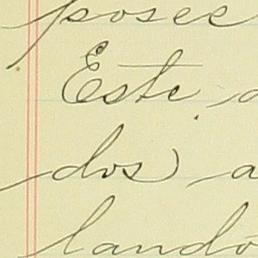 posee
Este
dos) a
lando